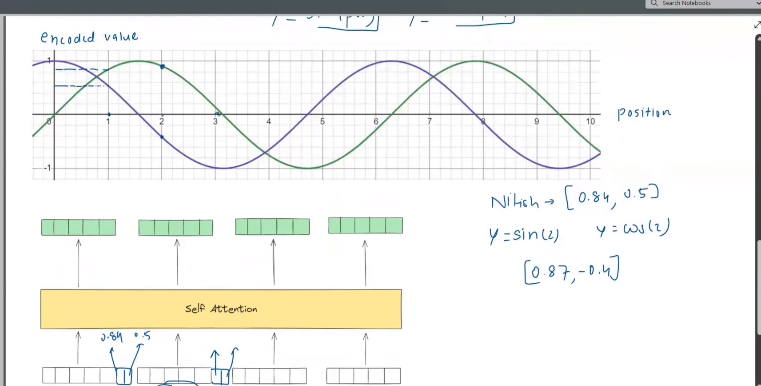 Search Notebooks
encoded value
1
0 1 2 3 4 5 6 7 8 9 10
-1
position
Nitish → [0.84, 0.5]
y = sin(2) y = cos(2)
[0.87, -0.4]
Self Attention
0.84 0.5